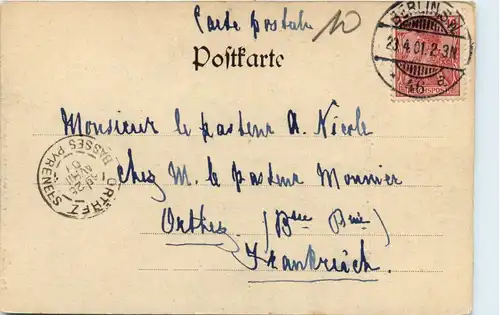 Carte postale
10
Postkarte
BERLIN S.W.
23.4.01.2-3N
* 46 g
Monsieur le pasteur A. Nicole
chez M. le Pasteur Monnier
Orthez (Bses
Frankreich
ORTHEZ
BASSES PYRENEES